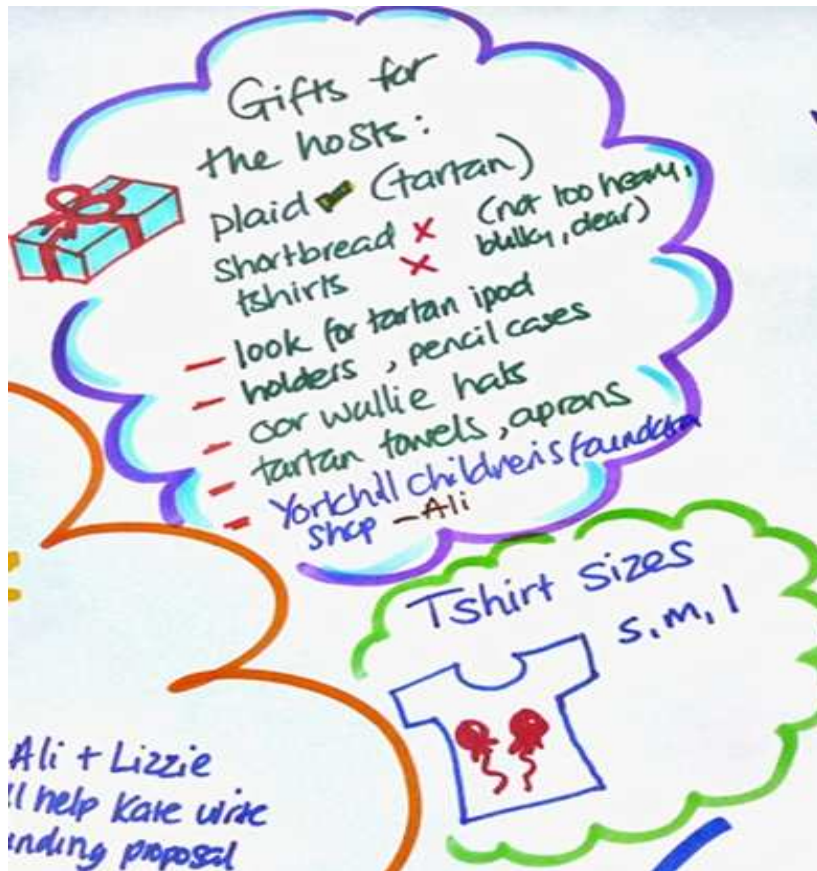 Gifts for
the hosts:
plaid (tartan)
shortbread x (not too heavy,
tshirts x bulky, dear)
— look for tartan ipod
— holders, pencil cases
— oor wullie hats
— tartan towels, aprons
— Yorkhill children's foundation
shop - Ali
Tshirt sizes
s, m, l
Ali + Lizzie
ll help Kate write
nding proposal